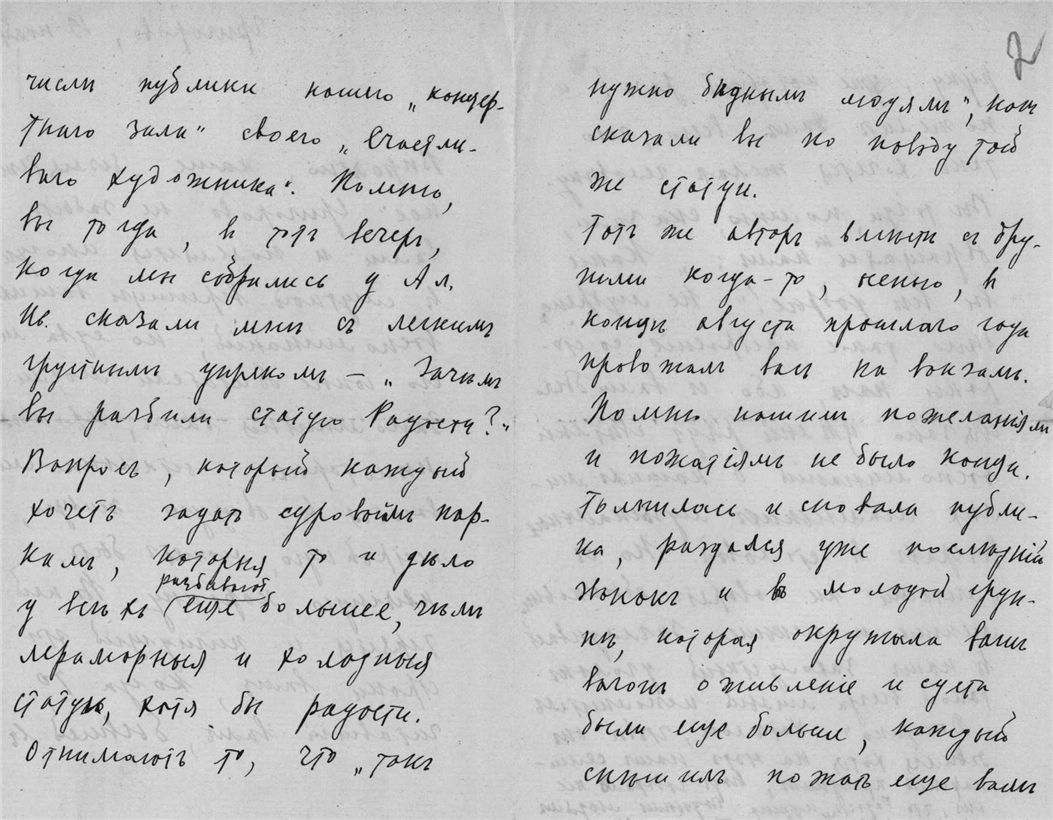 числѣ публики нашего „концер-
тнаго зала“ своего „Счастли-
ваго художника“. Помню,
вы тогда, въ тотъ вечеръ,
когда мы собрались у Ал.
Ив. сказали мнѣ съ легкимъ
грустнымъ упрекомъ — „Зачѣмъ
вы разбили статую Радости?“
Вопросъ, который каждый
хочетъ задать суровымъ пар-
камъ, которыя то и дѣло
разбиваютъ
у всѣхъ еще большее, чѣмъ
мраморныя и холодныя
статуи, хотя бы радости.
Отнимаютъ то, что „такъ
2
нужно бѣднымъ людямъ“, какъ
сказали вы по поводу той
же статуи.
Тотъ же авторъ вмѣстѣ съ дру-
гими когда-то, ночью, въ
концѣ августа прошлаго года
провожалъ васъ на вокзалъ.
Помню нашимъ пожеланіямъ
и пожатіямъ не было конца.
Толпилась и сновала публи-
ка, раздался уже послѣдній
звонокъ и въ молодой груп-
пѣ, которая окружала вашъ
вагонъ оживленіе и суета
были еще больше, каждый
спѣшилъ пожать еще вамъ